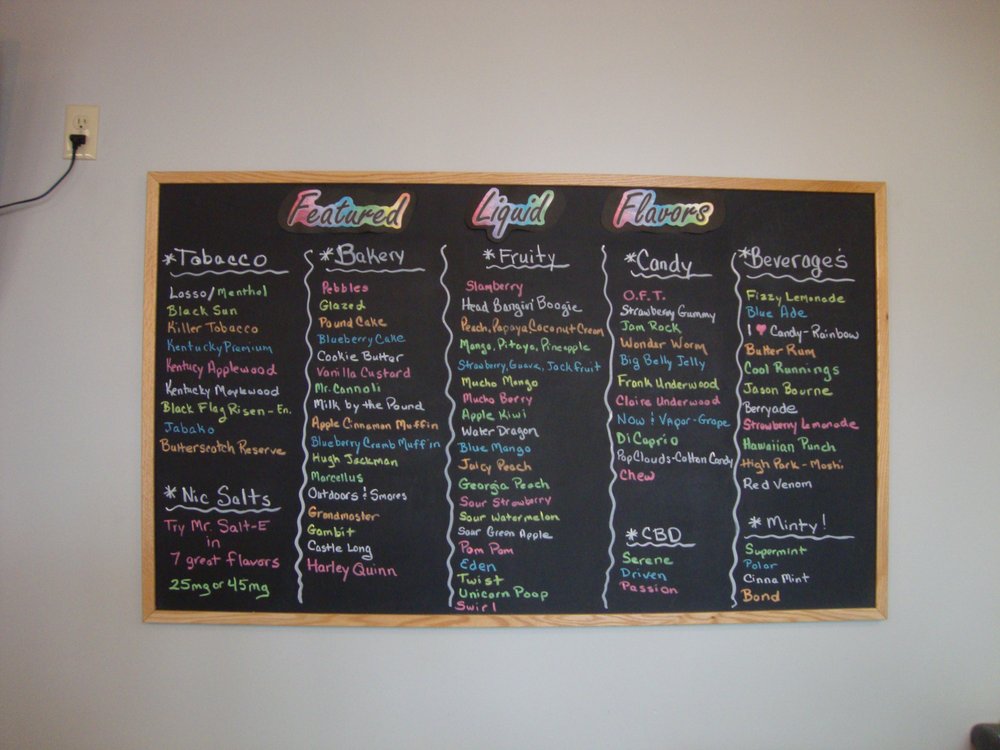 Featured Liquid Flavors
*Tobacco
Lasso/Menthol
Black Sun
Killer Tobacco
Kentucky Premium
Kentucy Applewood
Kentucky Maplewood
Black Flag Risen - En.
Jabako
Butterscotch Reserve
*Nic Salts
Try Mr. Salt-E
in
7 great flavors
25mg or 45mg
*Bakery
Pebbles
Glazed
Pound Cake
Blueberry Cake
Cookie Butter
Vanilla Custard
Mr. Cannoli
Milk by the Pound
Apple Cinnamon Muffin
Blueberry Crumb Muffin
Hugh Jackman
Marcellus
Outdoors & Smores
Grandmaster
Gambit
Castle Long
Harley Quinn
*Fruity
Slamberry
Head Bangin' Boogie
Peach, Papaya, Coconut Cream
Mango, Pitaya, Pineapple
Strawberry, Guava, Jackfruit
Mucho Mango
Mucho Berry
Apple Kiwi
Water Dragon
Blue Mango
Juicy Peach
Georgia Peach
Sour Strawberry
Sour Watermelon
Sour Green Apple
Pom Pam
Eden
Twist
Unicorn Poop
Swirl
*Candy
O.F.T.
Strawberry Gummy
Jam Rock
Wonder Worm
Big Belly Jelly
Frank Underwood
Claire Underwood
Now & Vapor-Grape
DiCaprio
Pop Clouds-Cotton Candy
Chew
*CBD
Serene
Driven
Passion
*Beverages
Fizzy Lemonade
Blue Ade
I ♥ Candy-Rainbow
Butter Rum
Cool Runnings
Jason Bourne
Berryade
Strawberry Lemonade
Hawaiian Punch
High Park - Moshi
Red Venom
*Minty!
Supermint
Polar
Cinna Mint
Bond